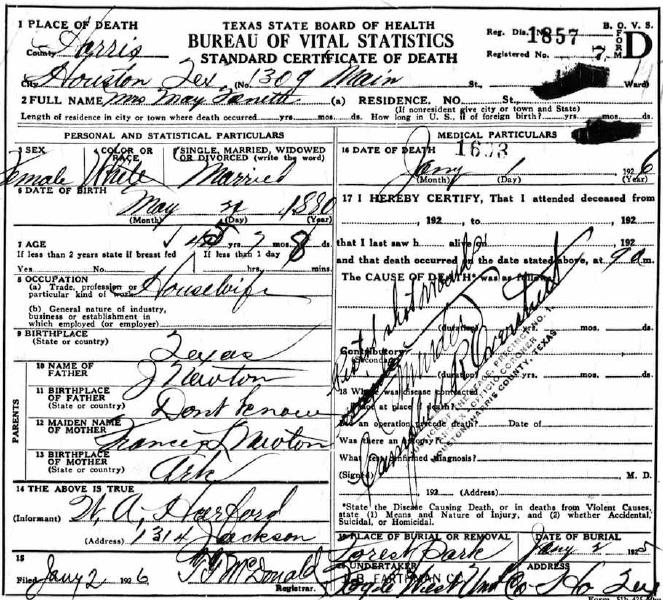 1 PLACE OF DEATH
TEXAS STATE BOARD OF HEALTH
BUREAU OF VITAL STATISTICS
STANDARD CERTIFICATE OF DEATH
Reg. Dis. 1857
B. O. V. S.
FORM D
County Harris
Registered No. 7
City Houston Tex (No. 1309 Main St., Ward)
2 FULL NAME Mrs May (a) RESIDENCE. NO. St.,
(If nonresident give city or town and State)
Length of residence in city or town where death occurred yrs. mos. ds. How long in U. S., if of foreign birth? yrs. mos. ds.
PERSONAL AND STATISTICAL PARTICULARS
3 SEX
Female
4 COLOR OR RACE
White
5 SINGLE, MARRIED, WIDOWED OR DIVORCED (write the word)
Married
6 DATE OF BIRTH
May 1880
(Month) (Day) (Year)
7 AGE
45 yrs. 7 mos. 8 ds.
If less than 2 years state if breast fed
If less than 1 day
Yes No hrs. mins.
8 OCCUPATION
(a) Trade, profession or particular kind of work Housewife
(b) General nature of industry,
business or establishment in
which employed (or employer)
9 BIRTHPLACE
(State or country) Texas
PARENTS
10 NAME OF FATHER J Newton
11 BIRTHPLACE OF FATHER
(State or country) Dont know
12 MAIDEN NAME OF MOTHER Frances Newton
13 BIRTHPLACE OF MOTHER
(State or country) Ark
14 THE ABOVE IS TRUE
(Informant) W. A. Harford
(Address) 1314 Jackson
15
Filed Jany 2 1926 McDonald
MEDICAL PARTICULARS
16 DATE OF DEATH
Jany 1 1926
(Month) (Day) (Year)
17 I HEREBY CERTIFY, That I attended deceased from
, 192 to , 192
that I last saw h alive on , 192
and that death occurred on the date stated above, at 9 a m.
The CAUSE OF DEATH* was as follows:
Pistol shot wound
Murder
Campbell R Overstreet
HOUSTON, HARRIS COUNTY, TEXAS
(duration) yrs. mos. ds.
Contributory
(Secondary)
(duration) yrs. mos. ds.
18 Where was disease contracted
if not at place of death?
Did an operation precede death? Date of
Was there an autopsy?
What test confirmed diagnosis?
(Signed) M. D.
192 (Address)
*State the Disease Causing Death, or in deaths from Violent Causes,
state (1) Means and Nature of Injury, and (2) whether Accidental,
Suicidal, or Homicidal.
19 PLACE OF BURIAL OR REMOVAL
Forest Park
DATE OF BURIAL
Jany 2 1925
20 UNDERTAKER
ADDRESS
Fogle West Und Co Ho Tex